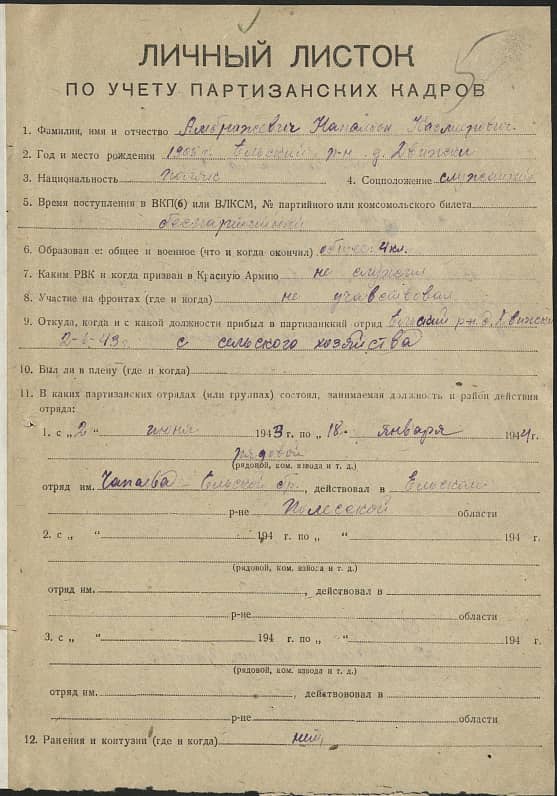 ЛИЧНЫЙ ЛИСТОК
ПО УЧЕТУ ПАРТИЗАНСКИХ КАДРОВ
1. Фамилия, имя и отчество Амбражевич Напалеон Касмирович
2. Год и место рождения 1905 г. Ельский р-н д. Движки
3. Национальность поляк 4. Соцположение служащий
5. Время поступления в ВКП(б) или ВЛКСМ, № партийного или комсомольского билета
беспартийный
6. Образован е: общее и военное (что и когда окончил) общее: 4 кл.
7. Каким РВК и когда призван в Красную Армию не служил
8. Участие на фронтах (где и когда) не учавствовал
9. Откуда, когда и с какой должности прибыл в партизанкий отряд Ельский р-н д. Движки
2-6-43г. с сельского хозяйства
10. Был ли в плену (где и когда)
11. В каких партизанских отрядах (или группах) состоял, занимаемая должность и район действия
отряда:
1. с „2 " июня 1943 г. по „18 " января 1944 г.
рядовой
(рядовой, ком. взвода и т. д.)
отряд им. Чапаева - Ельской бр., действовал в Ельском
р-не Полесской области
2. с „ " 194 г. по „ " 194 г.
(рядовой, ком. взвода и т. д.)
отряд им. , действовал в
р-не области
3. с „ " 194 г. по „ " 194 г.
(рядовой, ком. взвода и т. д.)
отряд им. , действововал в
р-не области
12. Ранения и контузии (где и когда) нет